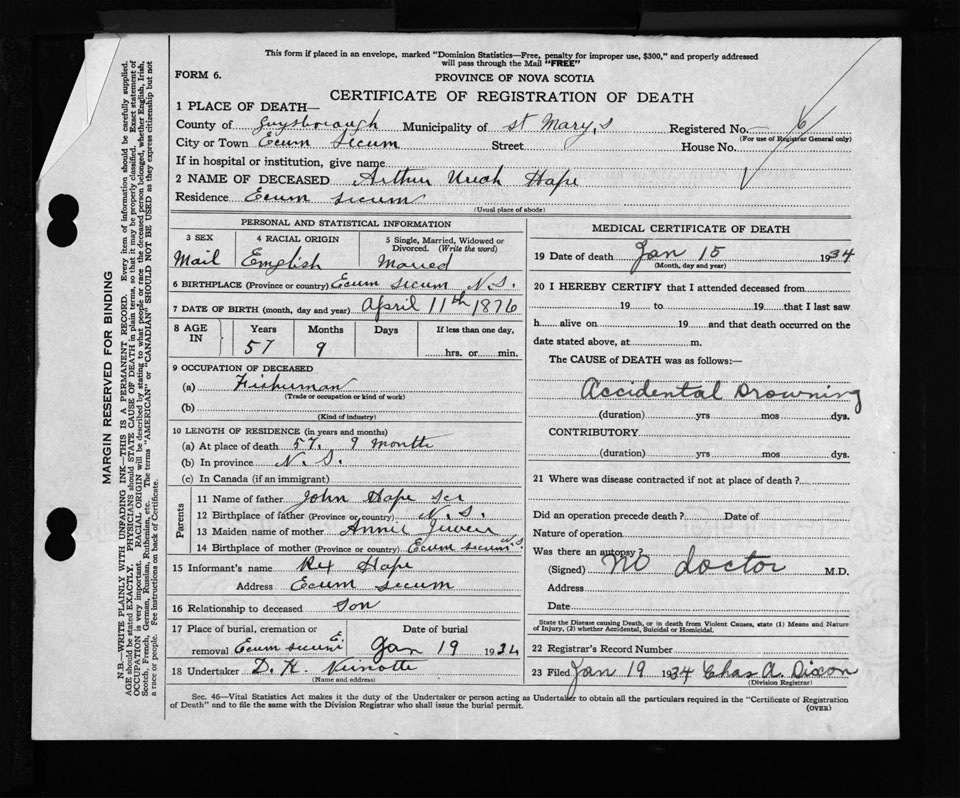 This form if placed in an envelope, marked "Dominion Statistics—Free, penalty for improper use, $300," and properly addressed
will pass through the Mail "FREE"
FORM 6.
PROVINCE OF NOVA SCOTIA
CERTIFICATE OF REGISTRATION OF DEATH
1 PLACE OF DEATH—
County of Guysborough Municipality of St Mary,s Registered No. 6
(For use of Registrar General only)
City or Town Ecum Secum Street House No.
If in hospital or institution, give name
2 NAME OF DECEASED Arthur Uriah Hape
Residence Ecum Secum
(Usual place of abode)
PERSONAL AND STATISTICAL INFORMATION
3 SEX 4 RACIAL ORIGIN 5 Single, Married, Widowed or
Divorced. (Write the word)
Mail English Maried
6 BIRTHPLACE (Province or country) Ecum Secum N.S.
7 DATE OF BIRTH (month, day and year) April 11th 1876
8 AGE IN Years Months Days If less than one day,
57 9 hrs. or min.
9 OCCUPATION OF DECEASED
(a) Fisherman
(Trade or occupation or kind of work)
(b)
(Kind of industry)
10 LENGTH OF RESIDENCE (in years and months)
(a) At place of death 57. 9 months
(b) In province N.S.
(c) In Canada (if an immigrant)
Parents
11 Name of father John Hape Scr
12 Birthplace of father (Province or country) N.S.
13 Maiden name of mother Annie
14 Birthplace of mother (Province or country) Ecum Secum N.S.
15 Informant's name Rex Hape
Address Ecum Secum
16 Relationship to deceased Son
17 Place of burial, cremation or Date of burial
removal Ecum Secum E. Jan 19 1934
18 Undertaker D. H.
(Name and address)
MEDICAL CERTIFICATE OF DEATH
19 Date of death Jan 15 1934
(Month, day and year)
20 I HEREBY CERTIFY that I attended deceased from
19 to 19 that I last saw
h alive on 19 and that death occurred on the
date stated above, at m.
The CAUSE of DEATH was as follows:—
Accidental Drowning
(duration) yrs mos dys.
CONTRIBUTORY
(duration) yrs mos dys.
21 Where was disease contracted if not at place of death?
Did an operation precede death? Date of
Nature of operation
Was there an autopsy?
(Signed) No doctor M.D.
Address
Date
State the Disease causing Death, or in death from Violent Causes, state (1) Means and Nature
of Injury, (2) whether Accidental, Suicidal or Homicidal.
22 Registrar's Record Number
23 Filed Jan 19 1934 Chas A. Dixon
(Division Registrar)
Sec. 46—Vital Statistics Act makes it the duty of the Undertaker or person acting as Undertaker to obtain all the particulars required in the "Certificate of Registration
of Death" and to file the same with the Division Registrar who shall issue the burial permit.
(OVER)
MARGIN RESERVED FOR BINDING
N.B.—WRITE PLAINLY WITH UNFADING INK—THIS IS A PERMANENT RECORD. Every item of information should be carefully supplied.
AGE should be stated EXACTLY. PHYSICIANS should STATE CAUSE OF DEATH in plain terms, so that it may be properly classified. Exact statement of
OCCUPATION is very important. RACIAL ORIGIN will be described by stating to what people or race the deceased person belonged, whether English, Irish,
Scotch, French, German, Russian, Ruthenian, etc. The terms "AMERICAN" or "CANADIAN" SHOULD NOT BE USED as they express citizenship but not
a race or people. See instructions on back of Certificate.